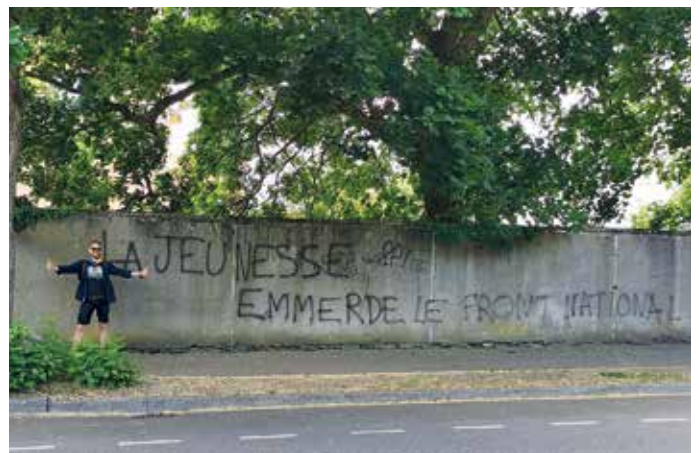 LA JEUNESSE
EMMERDE LE FRONT NATIONAL